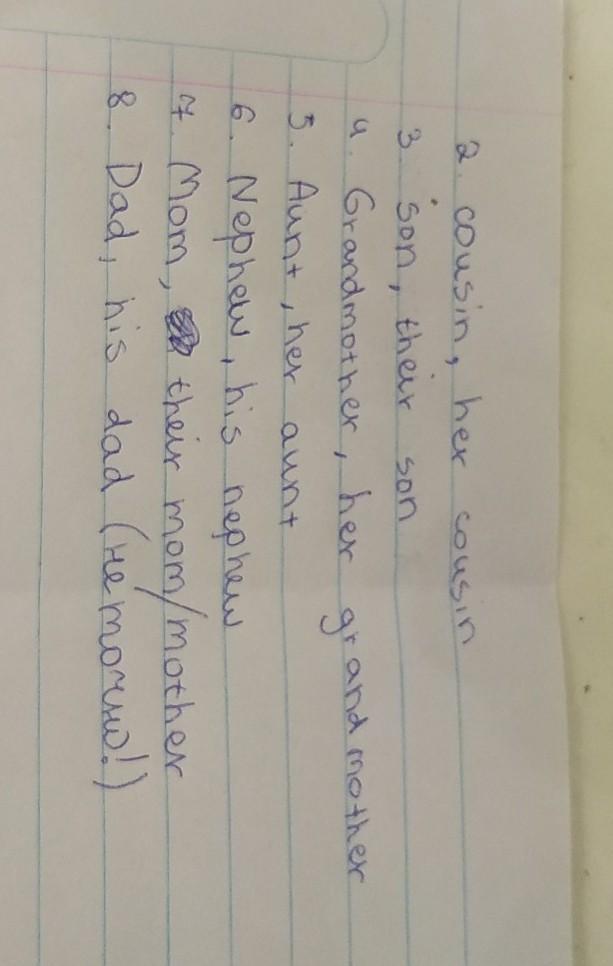 2. cousin, her cousin
3 son, their son
4. Grandmother, her grandmother
5. Aunt, her aunt
6. Nephew, his nephew
7. Mom, their mom/mother
8. Dad, his dad (не точно!)